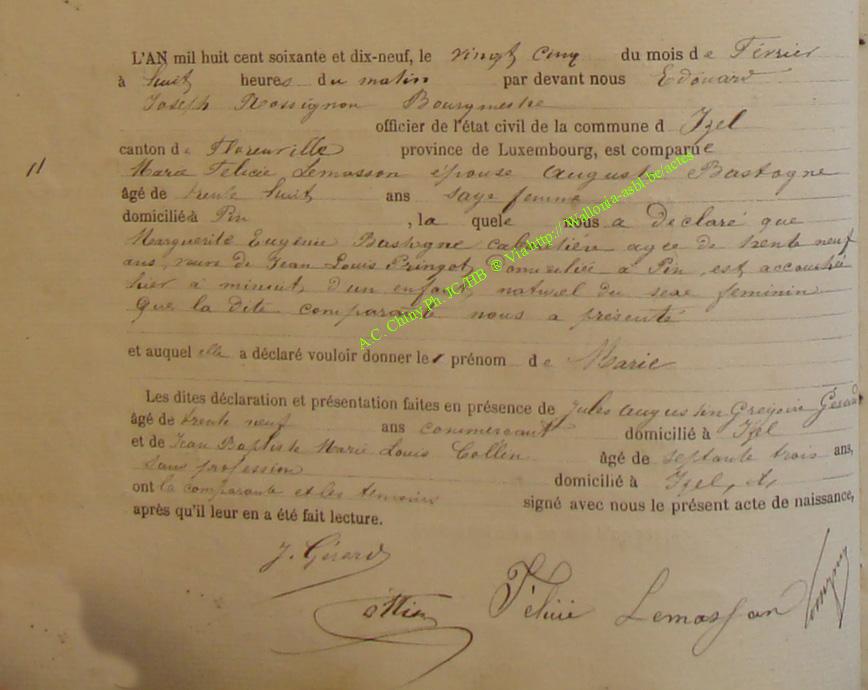 L'AN mil huit cent soixante et dix-neuf, le vingt cinq du mois de Février
à huit heures du matin par devant nous Edouard
Joseph Rossignon Bourgmestre
officier de l'état civil de la commune d Izel
canton de Florenville province de Luxembourg, est comparue
11
Marie Felicie Lemasson épouse Auguste Bastogne
âgé de trente huit ans sage femme
domicilié à Pin , la quele nous a declaré que
Marguerite Eugénie Bastogne agee de trente neuf
ans, veuve de Jean Louis Pringot, domiciliée à Pin, est accouchée
hier à minuit d'un enfant naturel du sexe feminin
que la dite comparante nous a présenté
et auquel elle a déclaré vouloir donner le prénom de Marie
Les dites déclaration et présentation faites en présence de Jules Augustin Grégoire Gérard
âgé de trente neuf ans commercant domicilié à Izel
et de Jean Baptiste Marie Louis âgé de septante trois ans,
sans profession domicilié à Izel, et
ont la comparante et les temoins signé avec nous le présent acte de naissance,
après qu'il leur en a été fait lecture.
J. Gérard
Félicie Lemasson
A.C. Chiny Ph. JC HB ® Via http://Wallonia-asbl.be/actes